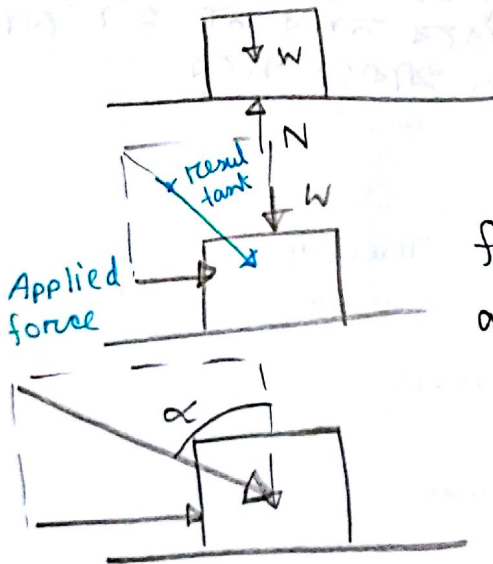 W
N
resul
tant
W
Applied
force
f
a
α